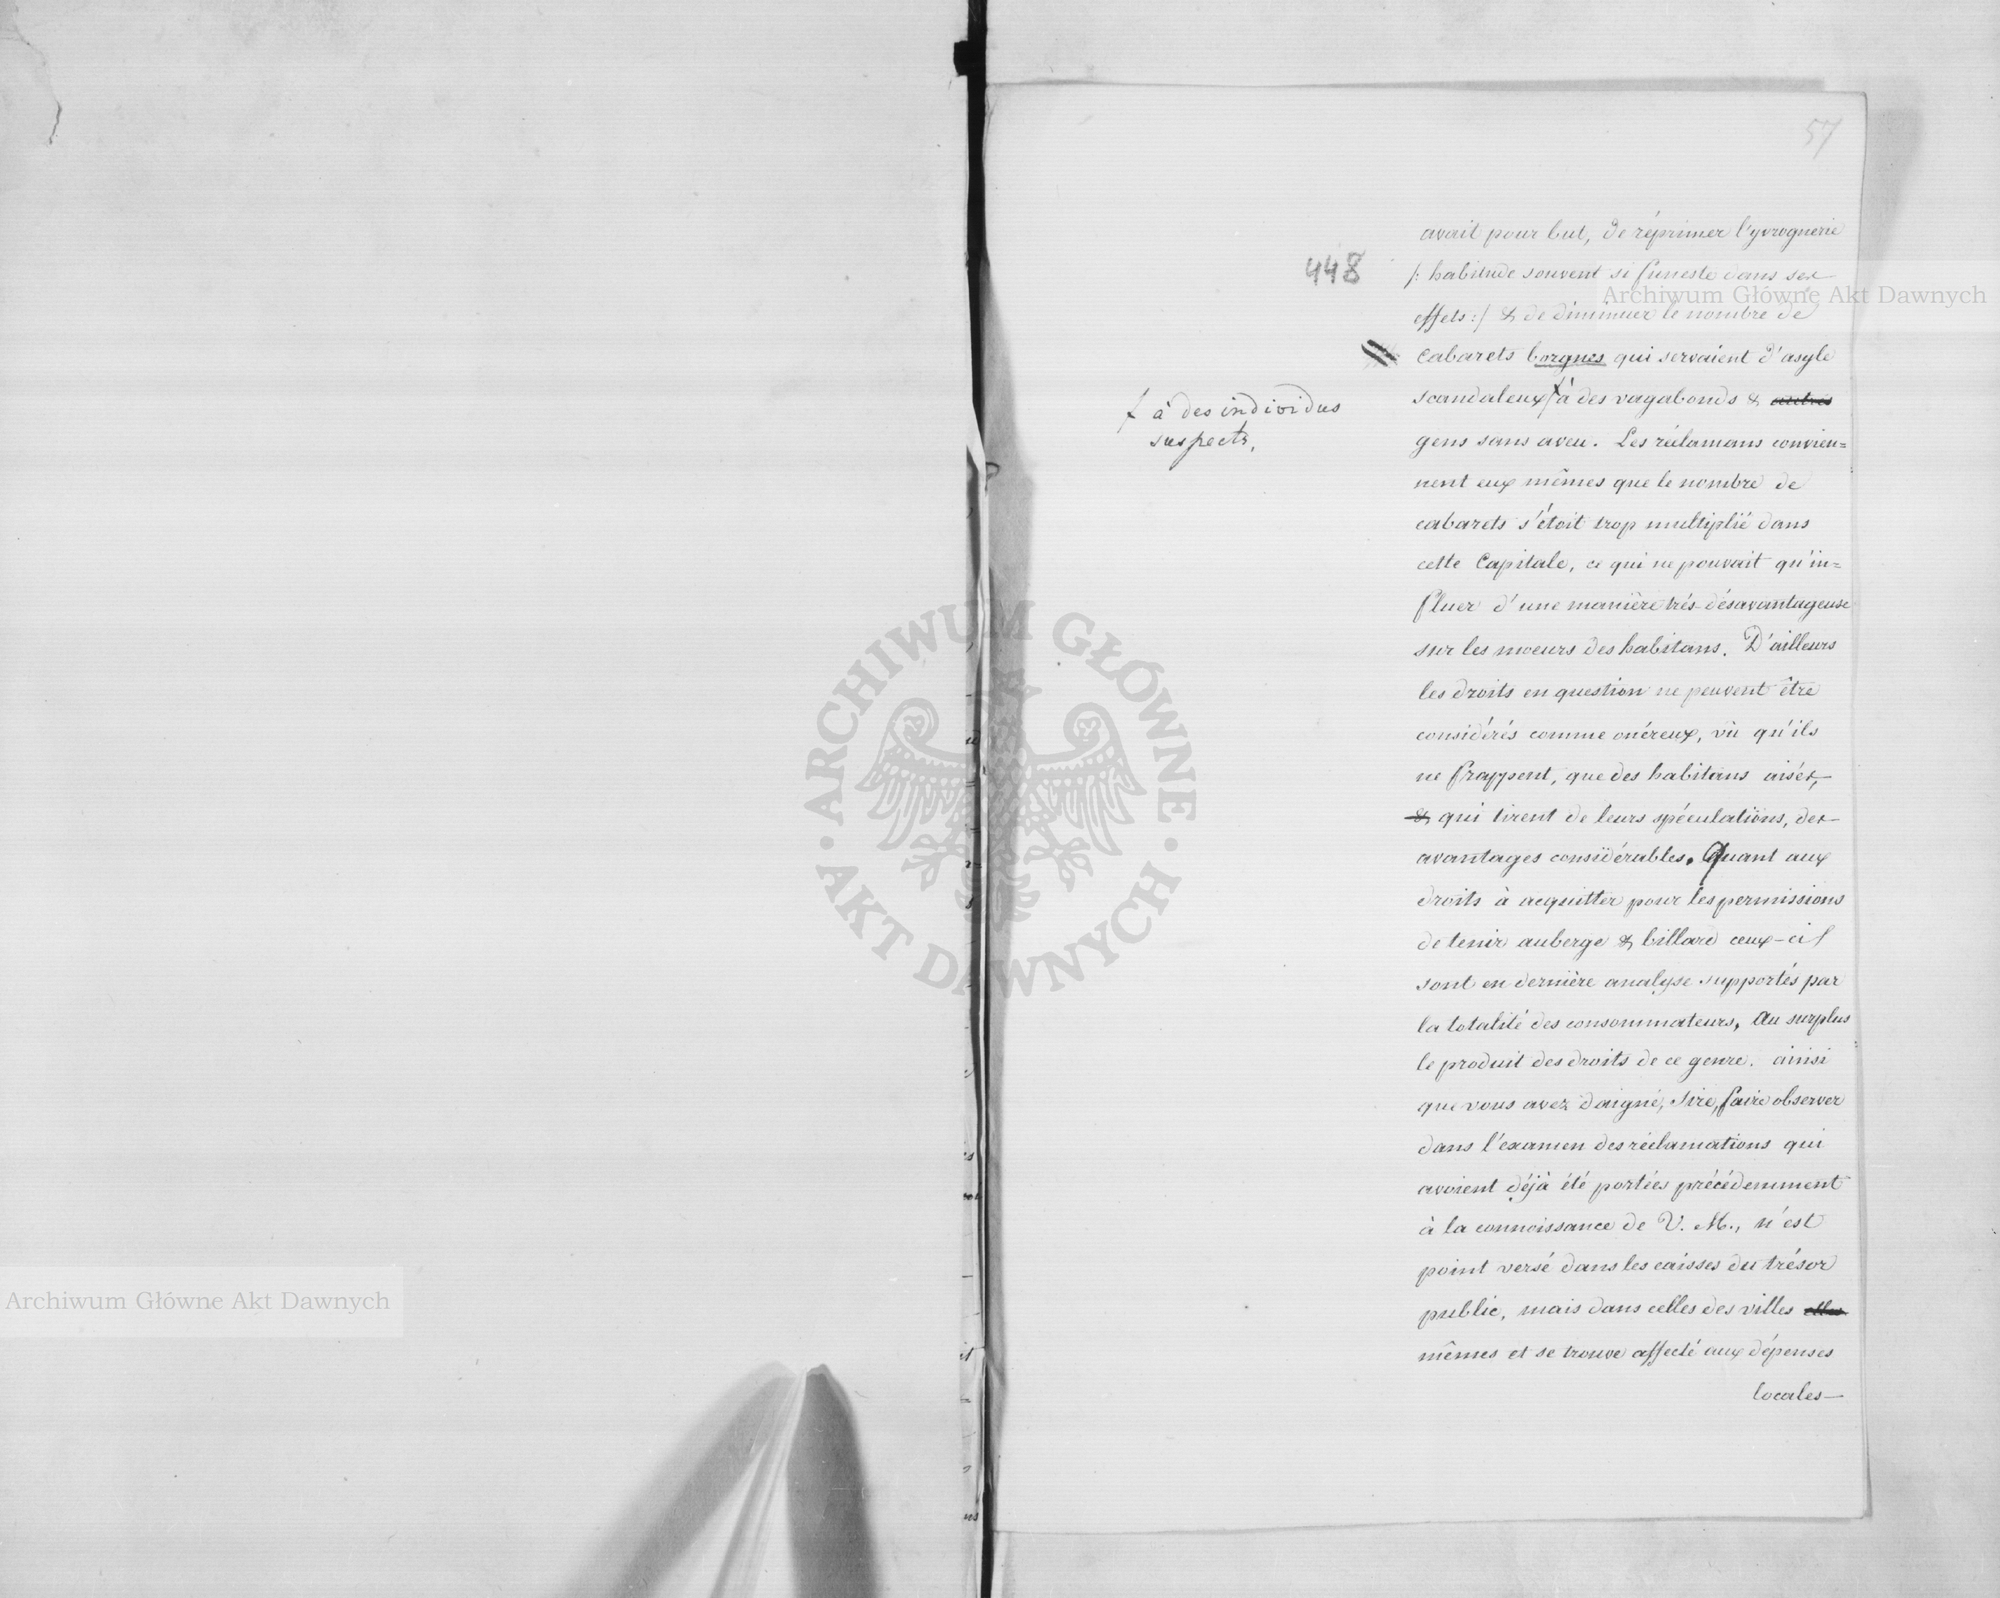 57
448
avait pour but, de réprimer l'yvrognerie
/: habitude souvent si funeste dans ses
effets :/ & de diminuer le nombre de
cabarets borgnes qui servaient d'asyle
scandaleux à des vagabonds & autres
à des individus
suspects,
gens sans aveu. Les réclamans convien=
nent eux mêmes que le nombre de
cabarets s'étoit trop multiplié dans
cette Capitale, ce qui ne pouvait qu'in=
fluer d'une manière très-désavantageuse
sur les moeurs des habitans. D'ailleurs
les droits en question ne peuvent être
considérés comme onéreux, vù qu'ils
ne frappent, que des habitans aisés,
& qui tirent de leurs spéculations, des
avantages considérables. Quant aux
droits à acquitter pour les permissions
de tenir auberge & billard ceux-ci
sont en dernière analyse supportés par
la totalité des consommateurs, Au surplus
le produit des droits de ce genre. ainsi
que vous avez daigné, Sire, faire observer
dans l'examen des réclamations qui
avoient déjà été portées précédemment
à la connoissance de V. M., n'est
point versé dans les caisses du trésor
public, mais dans celles des villes elles
mêmes et se trouve affecté aux dépenses
locales
Archiwum Główne Akt Dawnych
ARCHIWUM GŁÓWNE · AKT DAWNYCH ·
Archiwum Główne Akt Dawnych